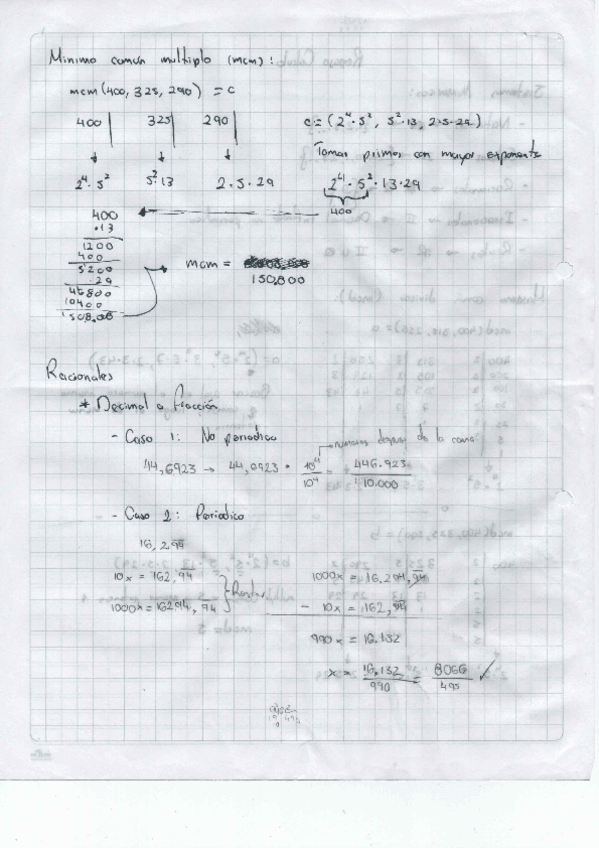 Minimo común multiplo (mcm):
mcm (400, 325, 290) = c
400 325 290 c = (2⁴·5², 5²·13, 2·5·29)
Tomar primos con mayor exponente
2⁴·5² 5²·13 2·5·29 2⁴·5²·13·29
400
400
·13
1200
400
5200
29
46800
10400
mcm =
150.800
Racionales
* Decimal a fracción
- Caso 1: No periodico
numeros despues de la coma
44,6923 → 10⁴ = 446.923
10⁴ 10.000
- Caso 2: Periodico
10x = 162,94 1000x = 16.294,94
1000x = 16294,94 } Restar − 10x = 162,94
990x = 16.132
x = 16,132 = 8066 ✓
990 495